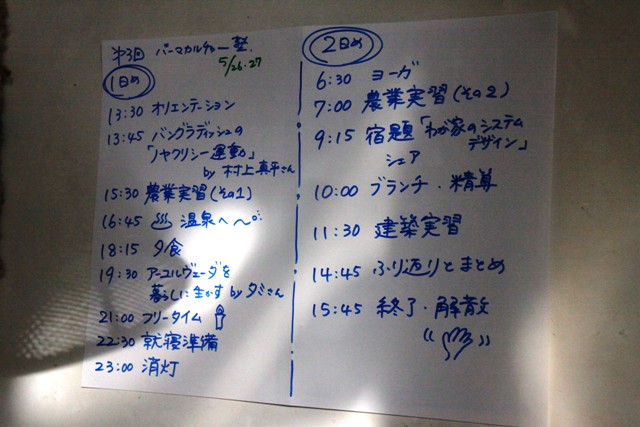 第3回 パーマカルチャー塾.
5/26.27
1日め
13:30 オリエンテーション
13:45 バングラディッシュの
「ノヤクリシー運動」
by 村上真平さん
15:30 農業実習(その1)
16:45 ♨ 温泉へ〜
18:15 夕食
19:30 アーユルヴェーダを
暮らしに生かす by タミさん
21:00 フリータイム
22:30 就寝準備
23:00 消灯
2日め
6:30 ヨーガ
7:00 農業実習(その2)
9:15 宿題「わが家のシステム
デザイン」
シェア
10:00 ブランチ・精算
11:30 建築実習
14:45 ふり返りとまとめ
15:45 終了・解散